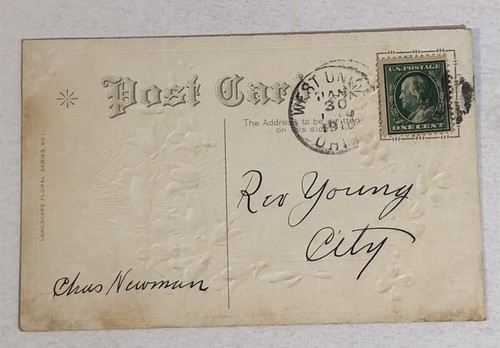 Post Card
The Address to be written
on this side
LANDSCAPE FLORAL SERIES NO 1
WEST UNI
JAN
30
1910
OHIO
U.S. POSTAGE
ONE CENT
Rev Young
City
Chas Newman